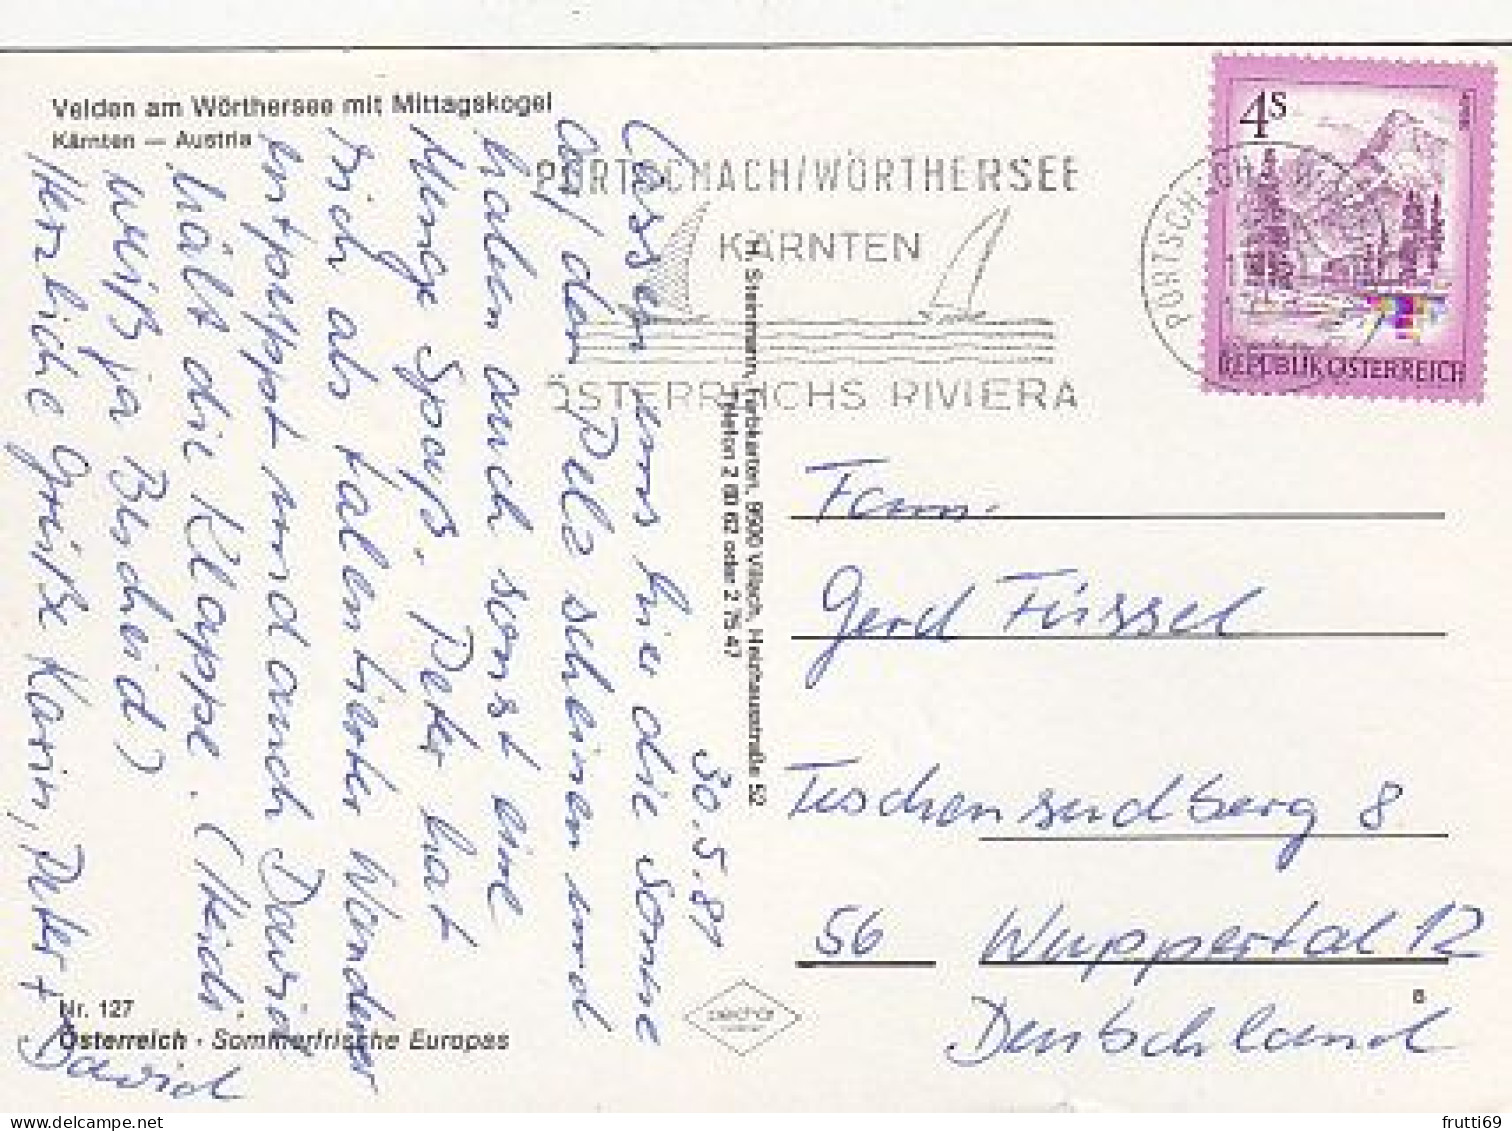 Velden am Wörthersee mit Mittagskogel
Kärnten — Austria
PÖRTSCHACH/WÖRTHERSEE
KÄRNTEN
ÖSTERREICHS RIVIERA
4 S
REPUBLIK ÖSTERREICH
30.5.81
Lassen uns hier die Sonne
auf den Pelz scheinen und
haben auch sonst eine
Menge Spaß. Peter hat
sich als talentierter Wanderer
entpuppt und auch David
hält die Klappe. (Heidi
weiß ja Bescheid)
Herzliche Grüße Karin, Peter +
David
H. Steinmann, Farbkarten, 9500 Villach, Heizhausstraße 52
Telefon 2 60 62 oder 2 75 47
Fam.
Gerd Füssel
Teschensudberg 8
56 Wuppertal 12
Deutschland
Nr. 127
Österreich · Sommerfrische Europas
delcampe.net
frutti69